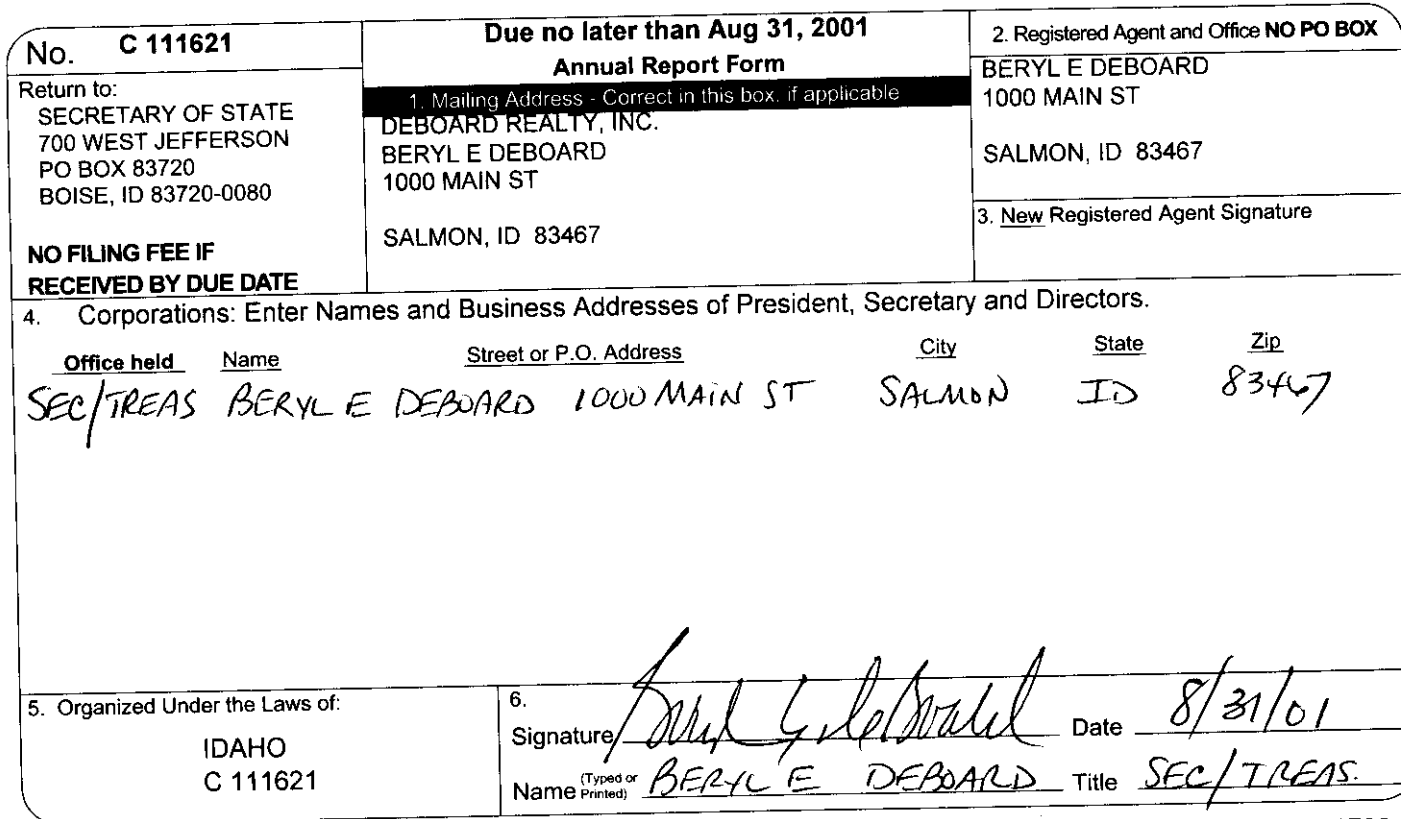 No. C 111621
Return to:
SECRETARY OF STATE
700 WEST JEFFERSON
PO BOX 83720
BOISE, ID 83720-0080
NO FILING FEE IF
RECEIVED BY DUE DATE
Due no later than Aug 31, 2001
Annual Report Form
1. Mailing Address - Correct in this box, if applicable
DEBOARD REALTY, INC.
BERYL E DEBOARD
1000 MAIN ST
SALMON, ID 83467
2. Registered Agent and Office NO PO BOX
BERYL E DEBOARD
1000 MAIN ST
SALMON, ID 83467
3. New Registered Agent Signature
4. Corporations: Enter Names and Business Addresses of President, Secretary and Directors.
Office held Name Street or P.O. Address City State Zip
SEC/TREAS BERYL E DEBOARD 1000 MAIN ST SALMON ID 83467
5. Organized Under the Laws of:
IDAHO
C 111621
6.
Signature Beryl E DeBoard Date 8/31/01
Name (Typed or Printed) BERYL E DEBOARD Title SEC/TREAS.